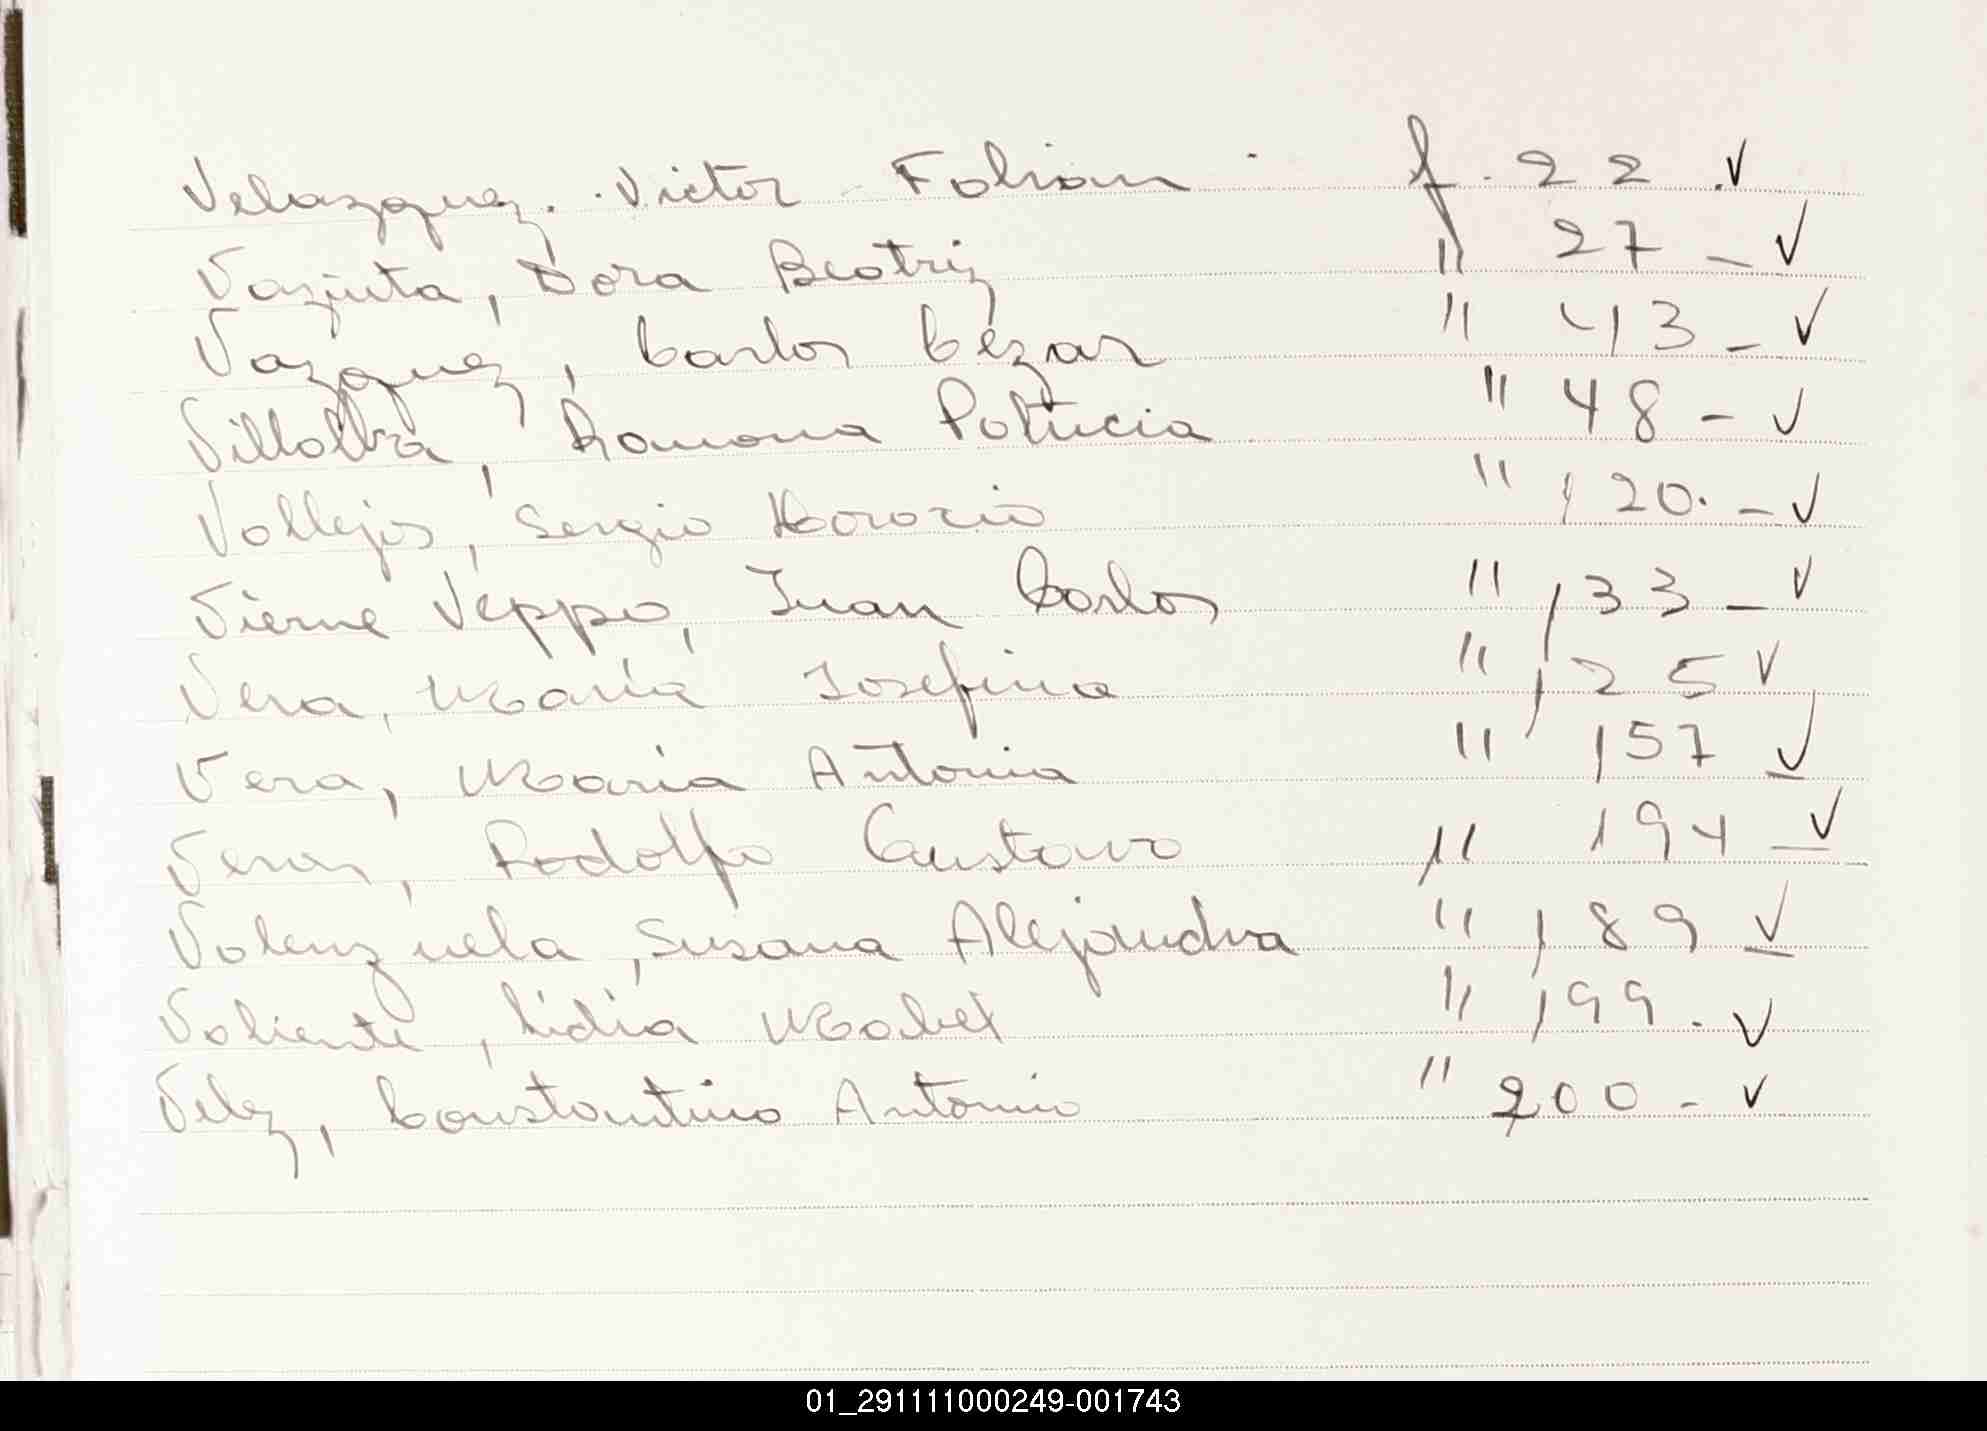 Velazquez. Victor Fabian f. 22 ✓
Vazuta, Dora Beatriz " 27 - ✓
Vazquez, Carlos Cézar " 43 - ✓
Villalba, Ramona Patricia " 48 - ✓
Vallejos, Sergio Horacio " 120. - ✓
Vierne Veppo, Juan Carlos " 133 - ✓
Vera, María Josefina " 125 ✓
Vera, Maria Antonia " 157 ✓
Veras, Rodolfo Gustavo " 194 ✓
Valenzuela, Susana Alejandra " 189 ✓
Valiente, Lidia Mabel " 199. ✓
Velez, Constantino Antonio " 200 - ✓
01_291111000249-001743